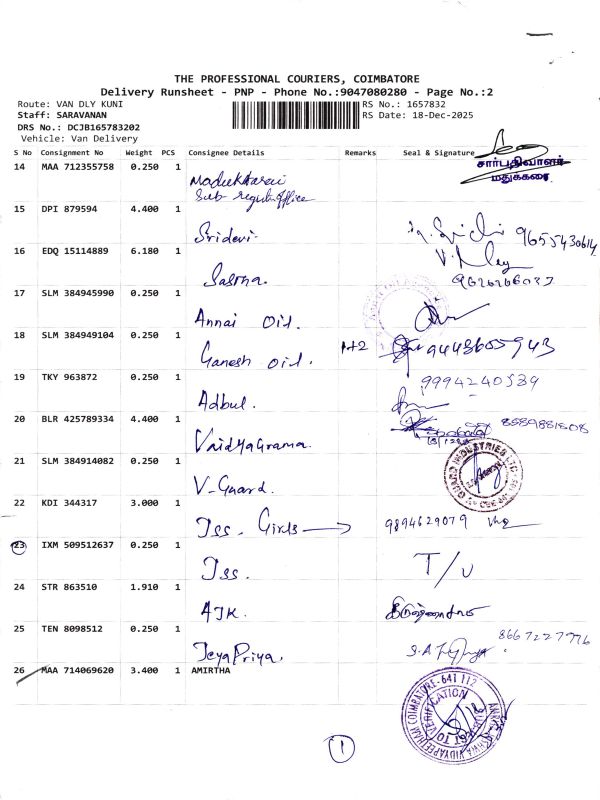 THE PROFESSIONAL COURIERS, COIMBATORE
Delivery Runsheet - PNP - Phone No.:9047080280 - Page No.:2
Route: VAN DLY KUNI RS No.: 1657832
Staff: SARAVANAN RS Date: 18-Dec-2025
DRS No.: DCJB165783202
Vehicle: Van Delivery
S No Consignment No Weight PCS Consignee Details Remarks Seal & Signature
சார்பதிவாளர்
மதுக்கரை
14 MAA 712355758 0.250 1 Madukkarai
Sub office
15 DPI 879594 4.400 1 Sridevi. 9655430614
16 EDQ 15114889 6.180 1 9626266037
17 SLM 384945990 0.250 1 Annai Oil.
18 SLM 384949104 0.250 1 Ganesh Oil. 1+2 9443605943
19 TKY 963872 0.250 1 Adbul. 9994240539
20 BLR 425789334 4.400 1 VaidyaGrama.
21 SLM 384914082 0.250 1 V-Guard.
GUARD INDUSTRIES LTD
22 KDI 344317 3.000 1 Jss. Girls → 9894629079
23 IXM 509512637 0.250 1 Jss. T/U
24 STR 863510 1.910 1 AJK.
25 TEN 8098512 0.250 1 JeyaPriya. 8667227776
26 MAA 714069620 3.400 1 AMIRTHA
VIDYAPEETHAM COIMBATORE-641 112
VERIFICATION
1